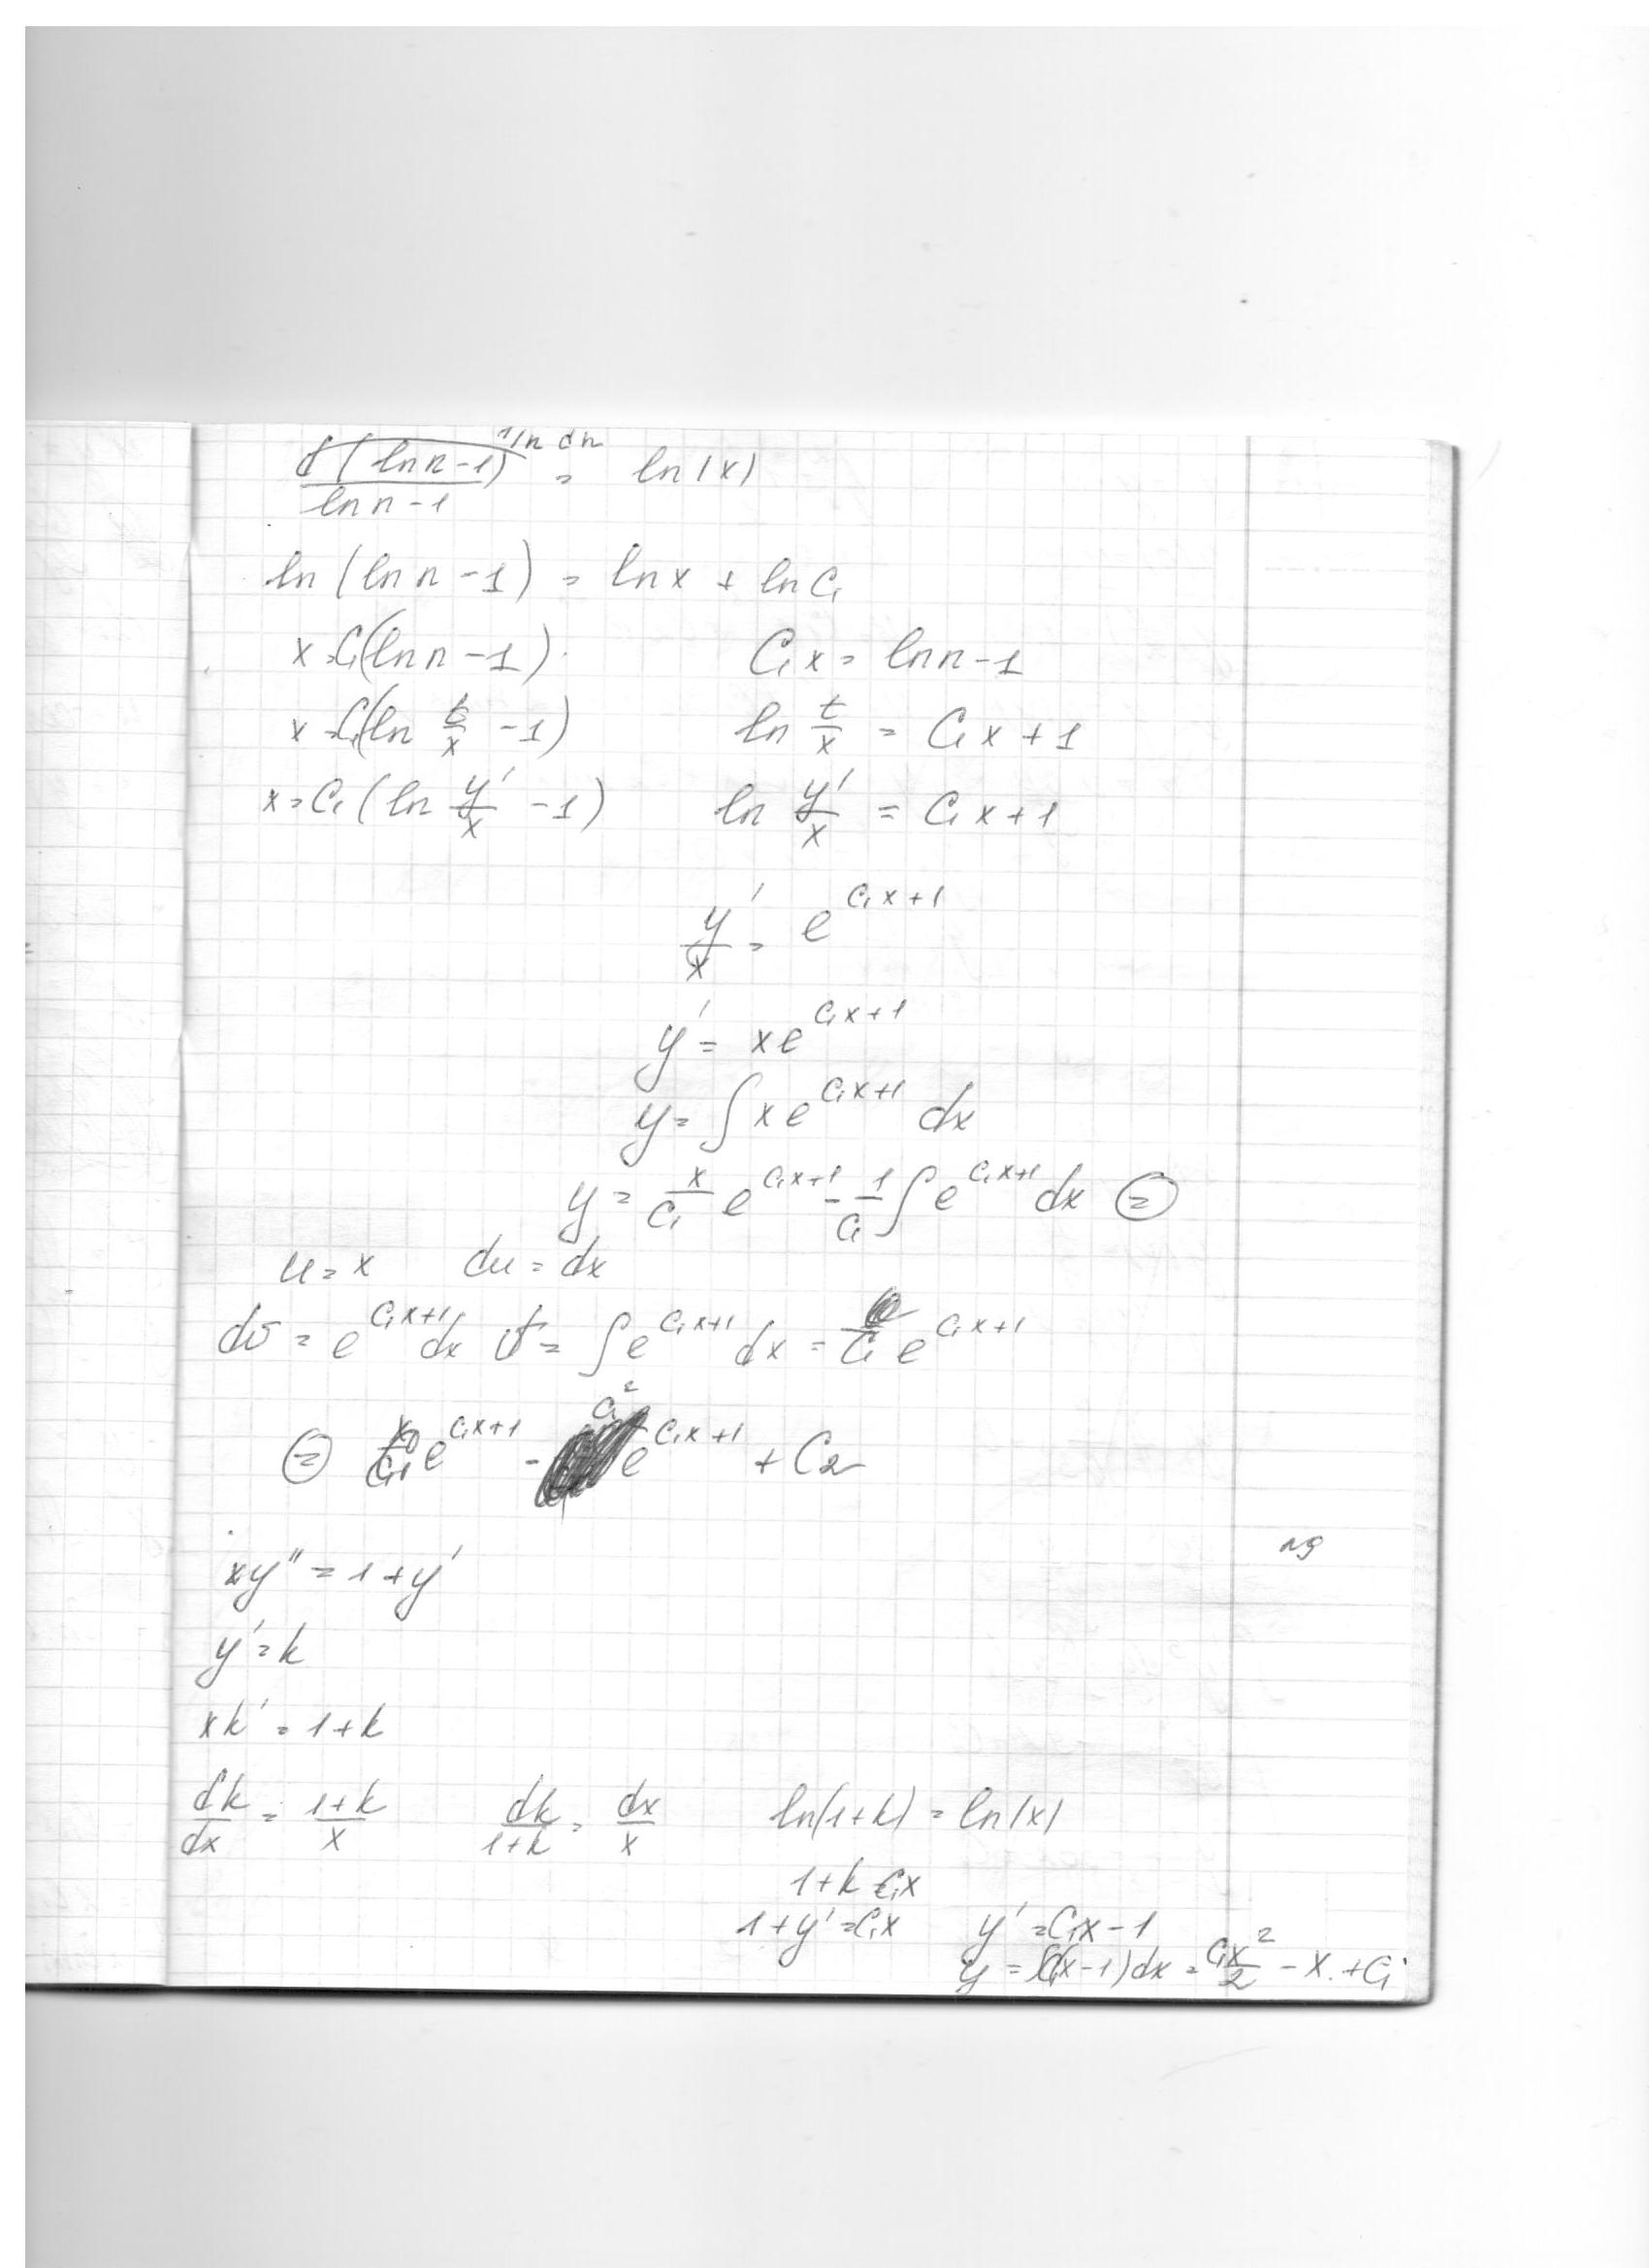 d(ln n - 1) 1/n dn
/ (ln n - 1) = ln|x|
ln(ln n - 1) = ln x + ln C₁
x = C₁(ln n - 1). C₁x = ln n - 1
x = C₁(ln t/x - 1) ln t/x = C₁x + 1
x = C₁(ln y'/x - 1) ln y'/x = C₁x + 1
y'/x = e^(C₁x+1)
y' = xe^(C₁x+1)
y = ∫xe^(C₁x+1) dx
y = x/C₁ e^(C₁x+1) - 1/C₁ ∫e^(C₁x+1) dx =
u = x du = dx
dv = e^(C₁x+1) dx v = ∫e^(C₁x+1) dx = /C₁ e^(C₁x+1)
= x/C₁ e^(C₁x+1) - C₁² e^(C₁x+1) + C₂
xy'' = 1 + y'
y' = k
xk' = 1 + k
dk/dx = (1+k)/x dk/(1+k) = dx/x ln(1+k) = ln|x|
1 + k = C₁x
1 + y' = C₁x y' = C₁x - 1
y = ∫(C₁x - 1)dx = C₁x²/2 - x. + C₁